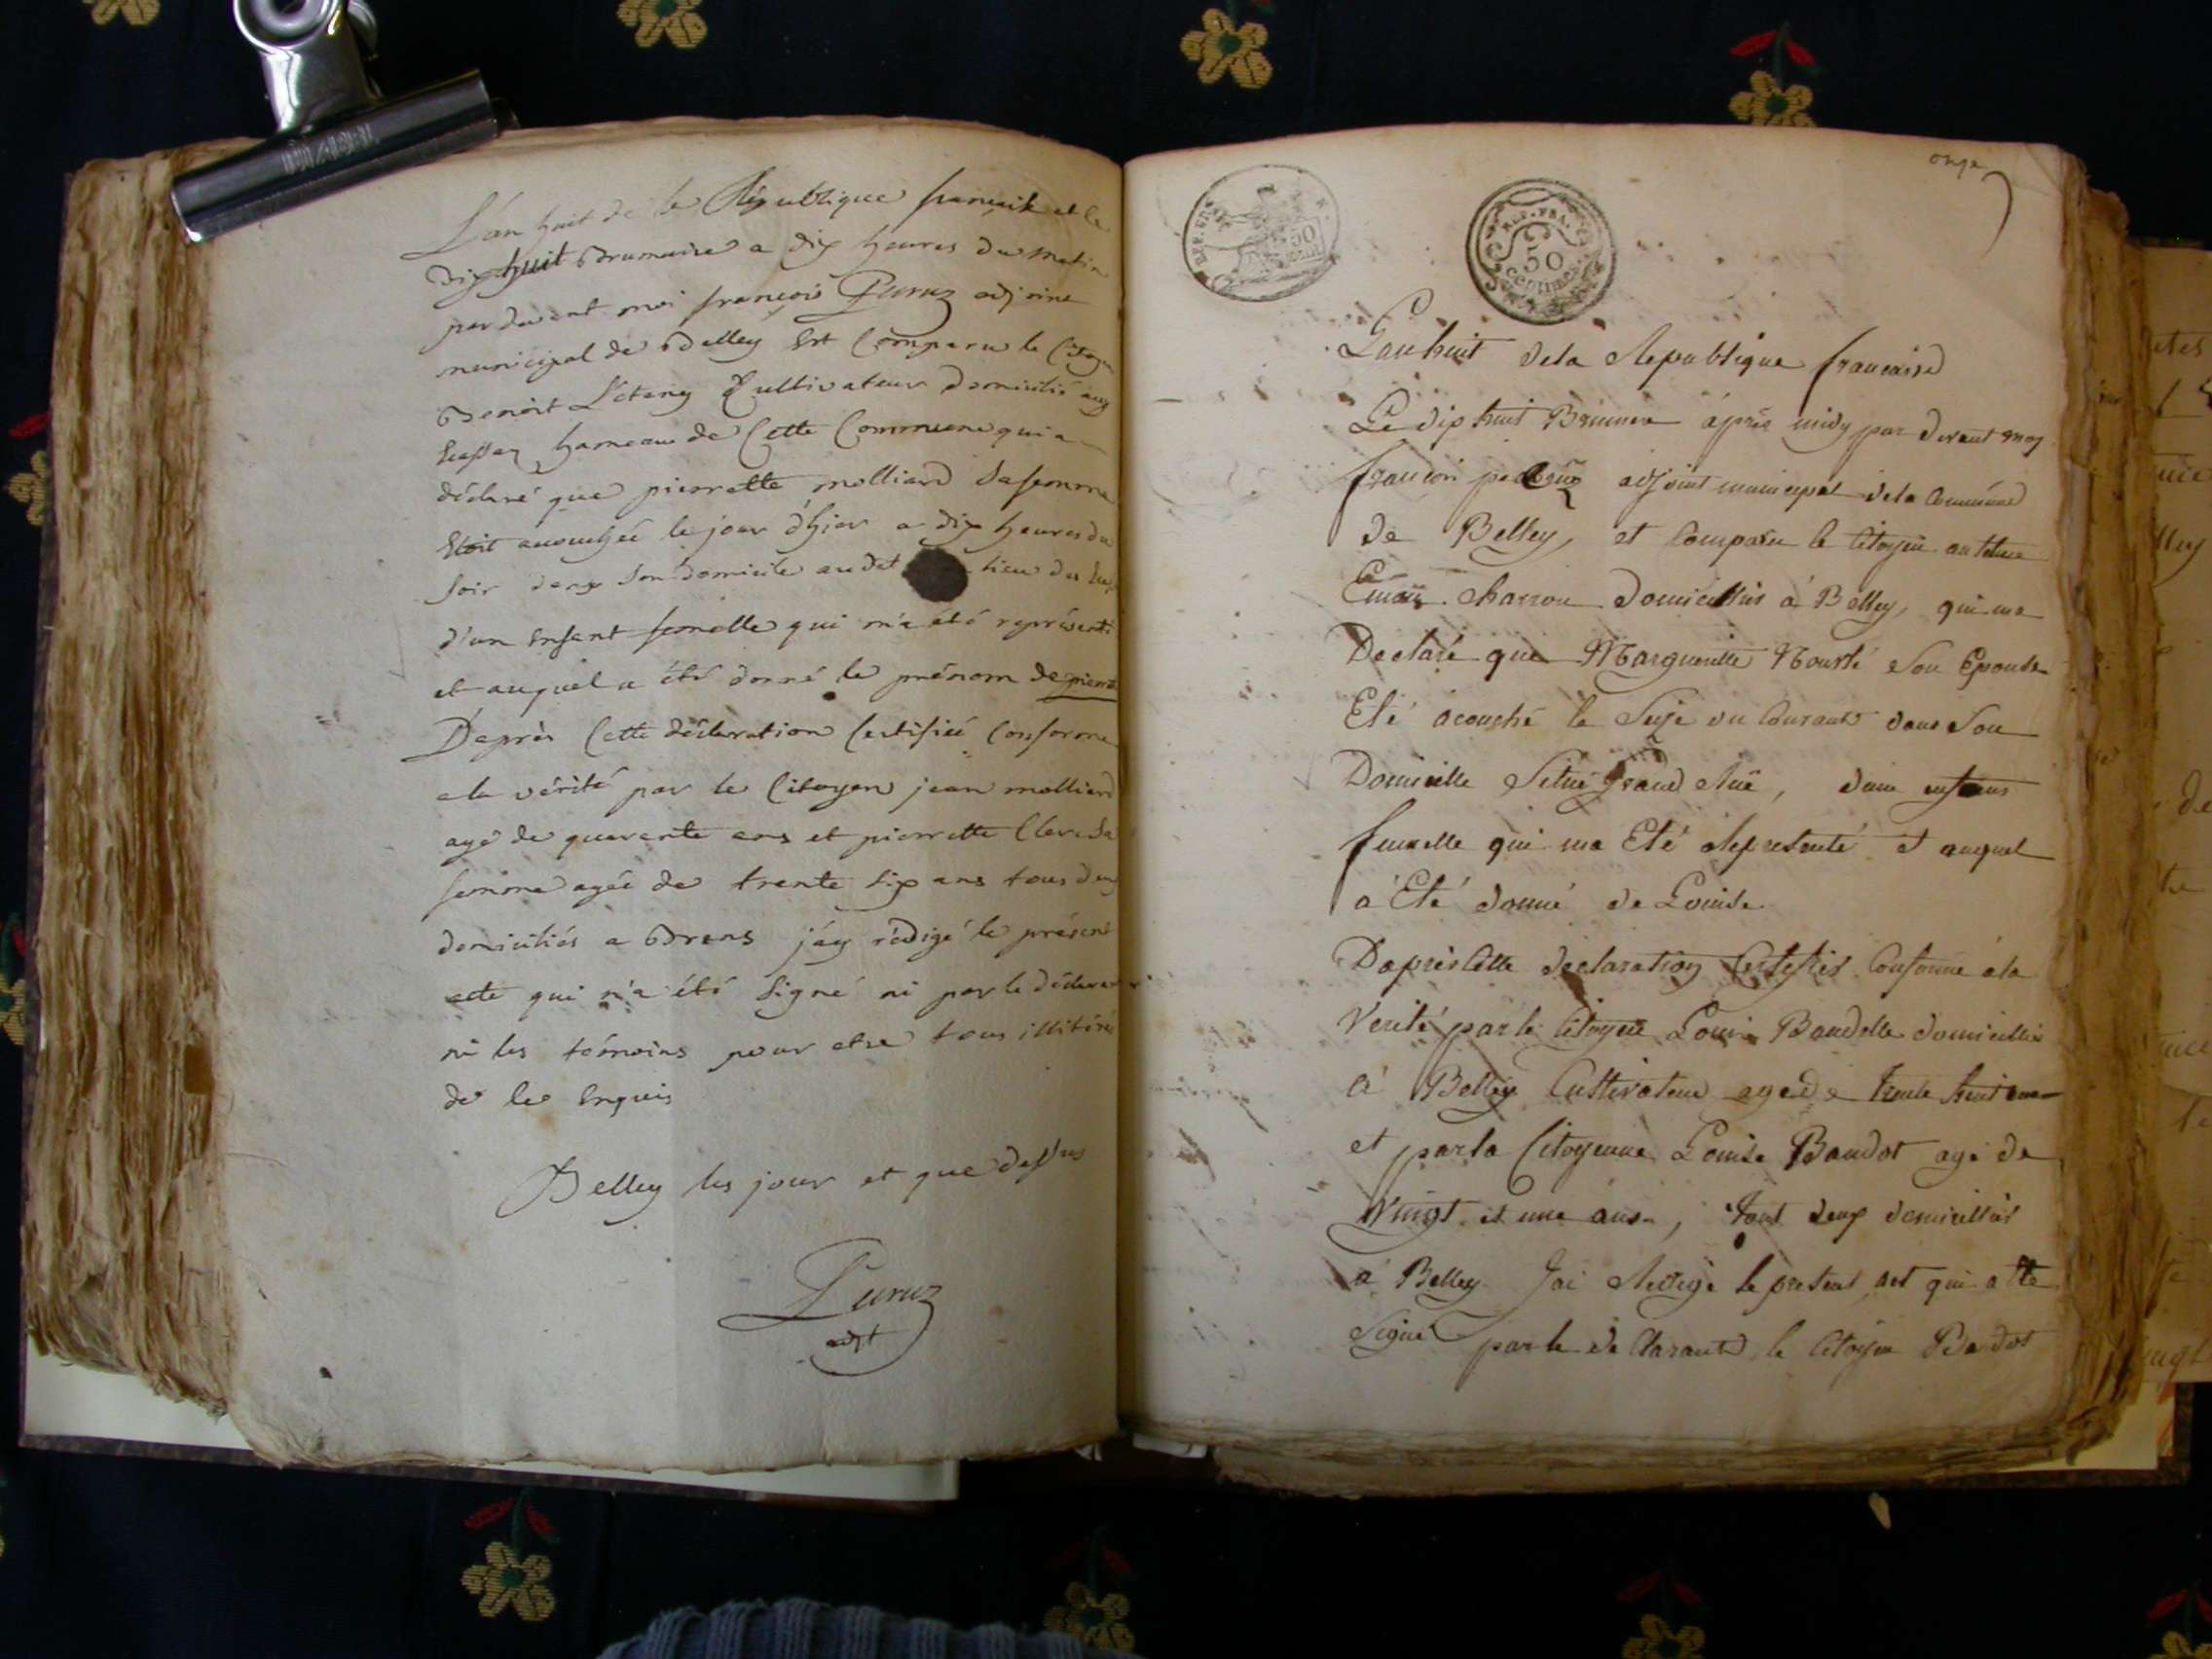 L'an huit de la République français et le
dix huit Brumaire a dix heures du matin
pardevant moi françois Peruz adjoint
municipal de Belley Est Comparu le Citoyen
Benoit L'étang Cultivateur domicilié aux
hameau de Cette Commune qui a
déclaré que pierrette molliard Sa femme
Etoit accouchée le jour d'hier a dix heures du
Soir dans Son domicile audit lieu des
d'un Enfant femelle qui m'a été représenté
et auquel a été donné le prénom de pierrette
D'après Cette déclaration Certifiée Conforme
a la vérité par le Citoyen jean molliard
agé de quarante ans et pierrette Clerc Sa
femme agée de trente Six ans tous deux
domiciliés a Brens j'ay rédigé le présent
acte qui n'a été Signé ni par le déclarant
ni les témoins pour etre tous illitérés
de ce Enquis
Belley les jour et que dessus
Peruz
adjt
onze
REP. FRA.
50
CENTIMES
Lan huit dela Republique francaise
Le dix huit Brumere après midy par devant moy
francoi adjoint municipal dela Commune
de Belley, et Comparu le Citoyen antelme
charron Domicillié à Belley, qui ma
Declaré que Margueritte Son Epouse
Eté acouché le Seize du Courant dans Son
Domicille Situé grand Rue, dun enfant
fumelle qui ma Eté Representé et auquel
a Eté donné de Louise
Daprès Cette declaration Certifiés Conforme ala
Verité par le Citoyen Louis Baudelle domicillié
à Belley Cultivateur agé de trente huit ans
et par la Citoyenne Louise Baudot agé de
Vingt et une ans, tout deux domicilliés
a Belley Jai Redigé le present act qui a ete
Signé par le de Clarant le Citoyen Baudot